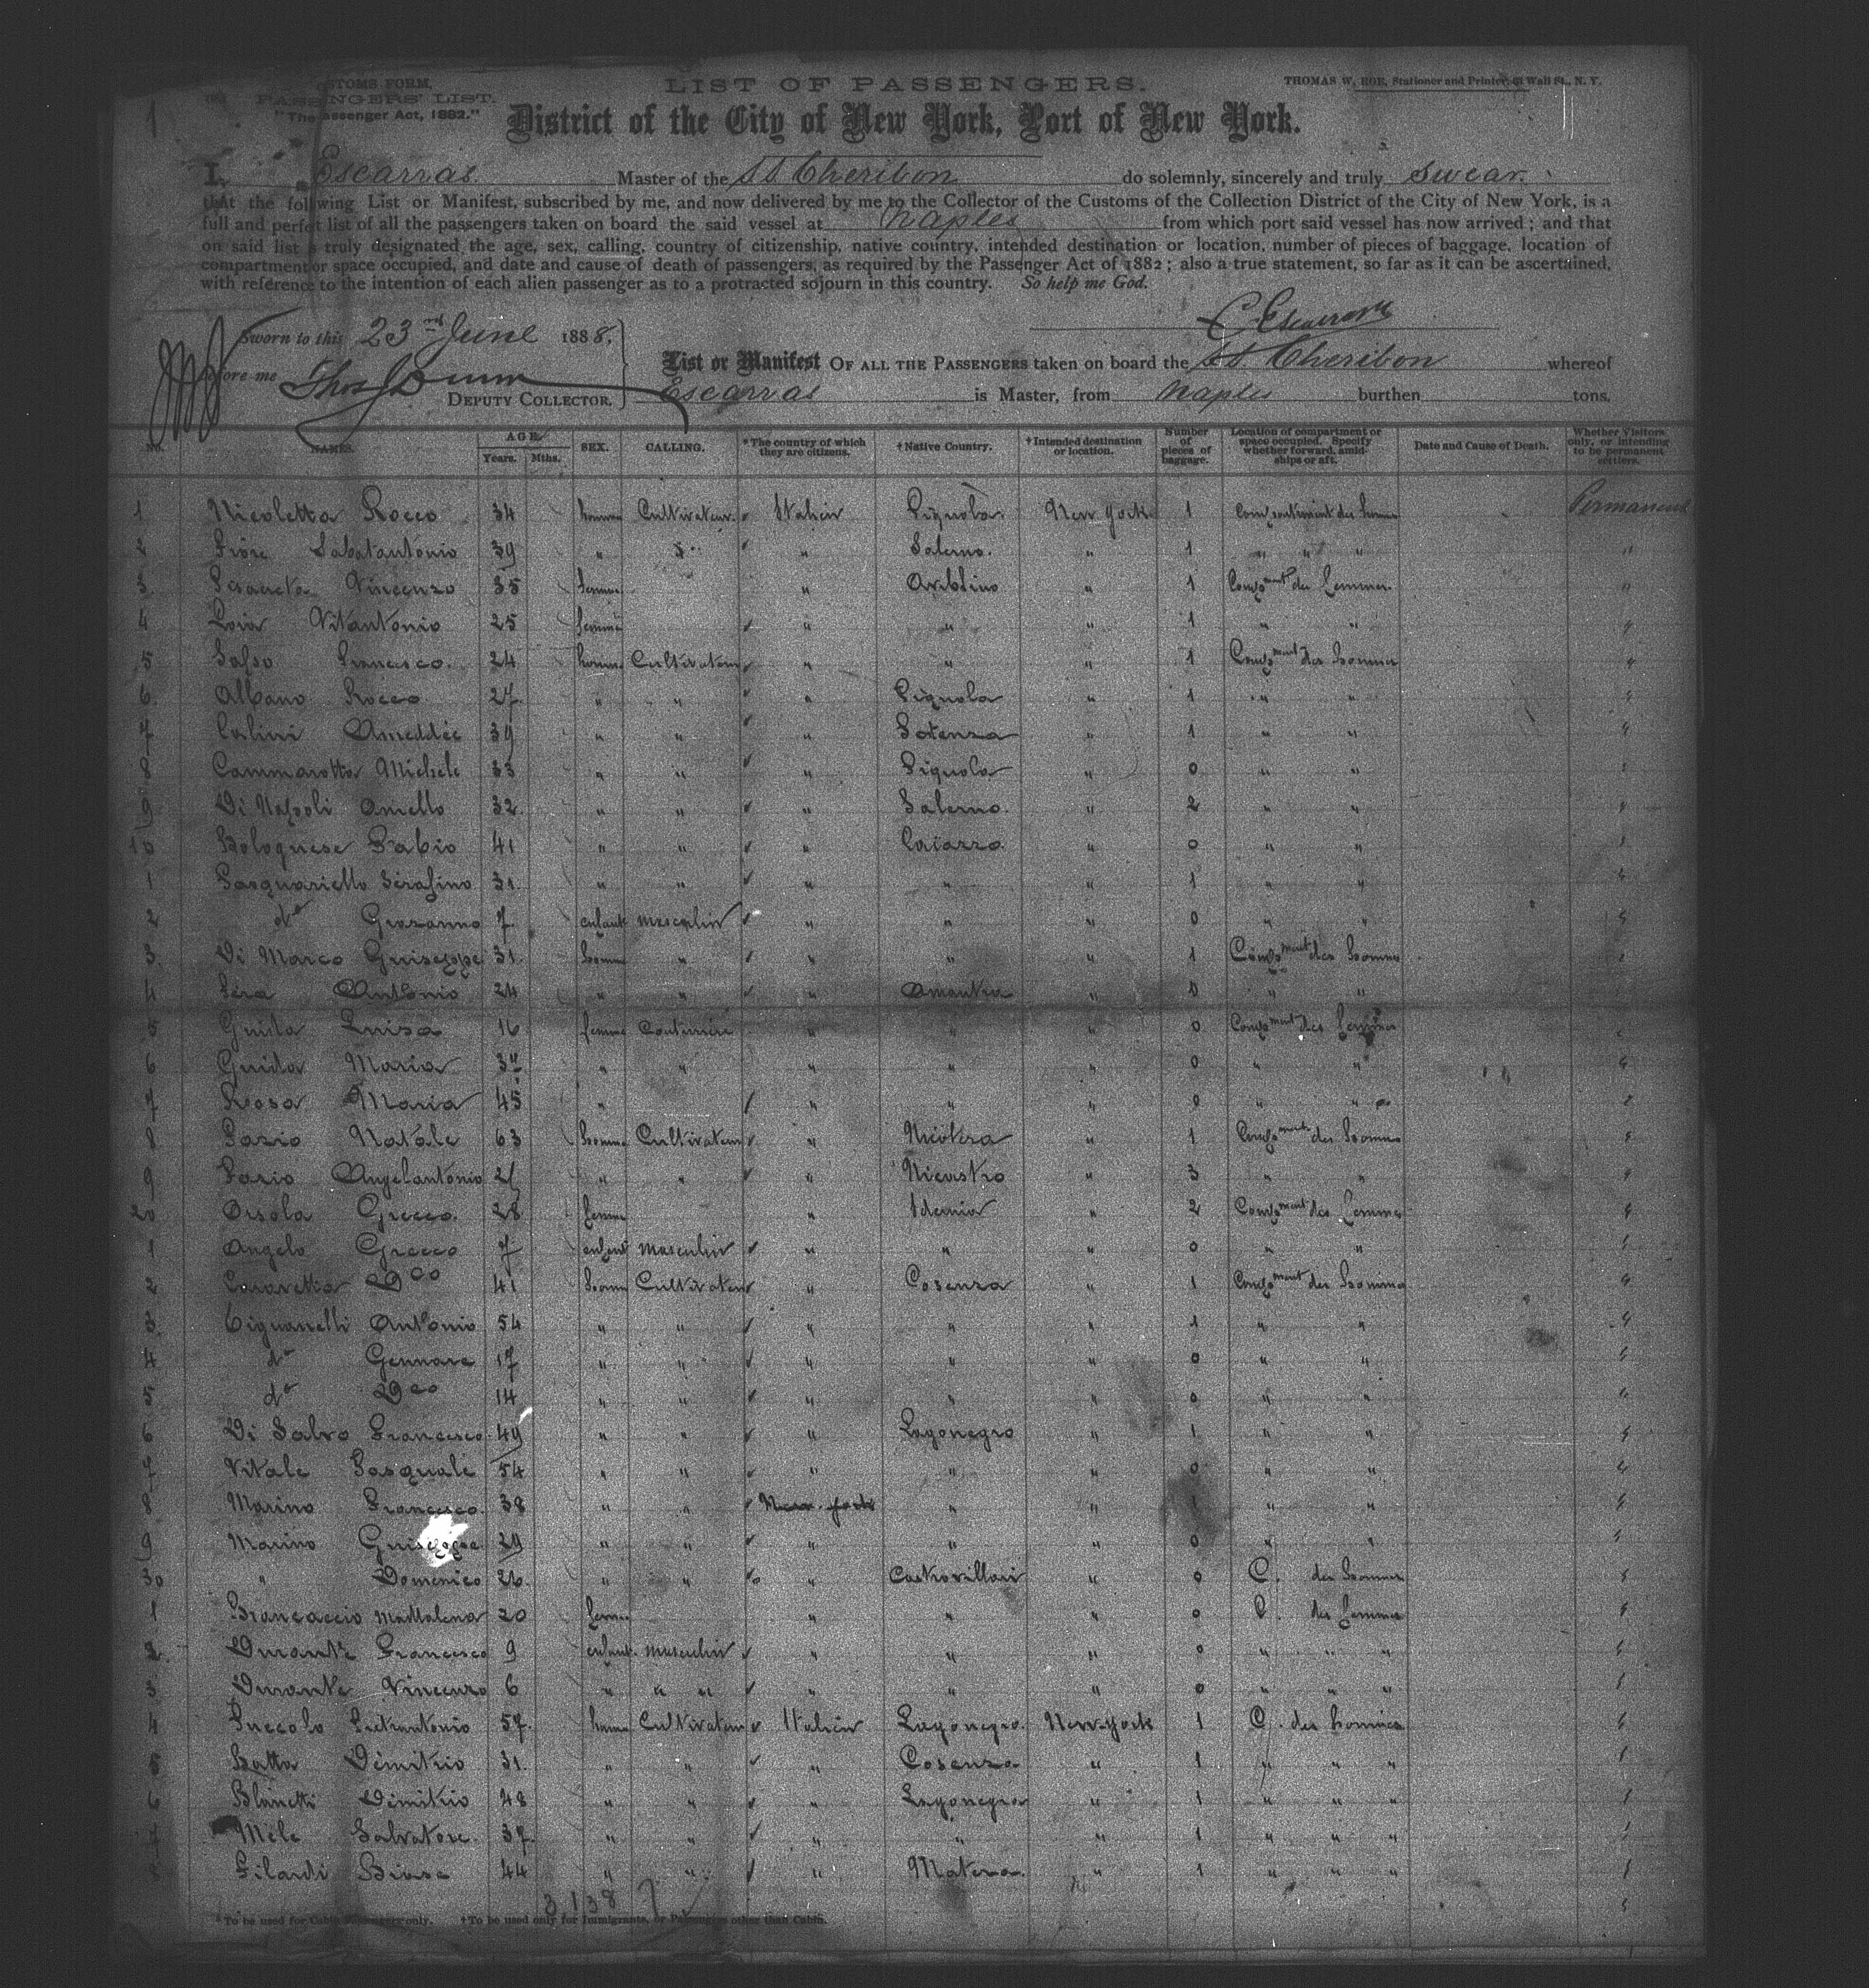 1
CUSTOMS FORM,
PASSENGERS' LIST.
"The Passenger Act, 1882."
LIST OF PASSENGERS.
THOMAS W. ROE, Stationer and Printer, Wall St., N. Y.
District of the City of New York, Port of New York.
I, Escarras Master of the SS Cheribon do solemnly, sincerely and truly swear
that the following List or Manifest, subscribed by me, and now delivered by me to the Collector of the Customs of the Collection District of the City of New York, is a
full and perfect list of all the passengers taken on board the said vessel at Naples from which port said vessel has now arrived; and that
on said list is truly designated the age, sex, calling, country of citizenship, native country, intended destination or location, number of pieces of baggage, location of
compartment or space occupied, and date and cause of death of passengers, as required by the Passenger Act of 1882; also a true statement, so far as it can be ascertained,
with reference to the intention of each alien passenger as to a protracted sojourn in this country. So help me God.
C. Escarras
Sworn to this 23rd June 1888,
before me Thos Dunn
DEPUTY COLLECTOR.
List or Manifest OF ALL THE PASSENGERS taken on board the SS. Cheribon whereof
Escarras is Master, from Naples burthen tons.
No. NAMES. AGE. Years. Mths. SEX. CALLING. *The country of which they are citizens. †Native Country. †Intended destination or location. Number of pieces of baggage. Location of compartment or space occupied. Specify whether forward, amidships or aft. Date and Cause of Death. Whether Visitors only, or intending to be permanent settlers.
1 Nicoletta Rocco 34 homme Cultivateur Italien Pignola New York 1 Compartiment des hommes Permanent
2 Fiore Sabatantonio 39 " " Salerno. " 1 " " " "
3 Vincenzo 35 femme " Avellino " 1 Compment des femmes "
4 Vitantonio 25 femme " " " 1 " " "
5 Salso Francesco. 24 homme Cultivateur " " " 1 Compment des hommes "
6 Albano Rocco 27 " " " Pignola " 1 " " "
7 Carlini Ameddée 39 " " " Potenza " 1 " " "
8 Cammarotta Michele 33 " " " Pignola " 0 " " "
9 Di Napoli Aniello 32 " " " Salerno. " 2 " " "
10 Bolognese Fabio 41 " " " Caiazzo " 0 " " "
1 Pasquariello Serafino 31 " " " " " 1 " " "
2 do 7 enfant masculin " " " 0 " " "
3 Di Marco Guiseppe 31 homme " " " " 1 Compment des hommes "
4 Antonio 24 " " " Amantea " 0 " " "
5 Guida Luisa 16 femme Couturière " " " 0 Compment des femmes "
6 Guida Maria " " " " " 0 " " "
7 Rosa Maria 45 " " " " 0 " " "
8 Natale 63 homme Cultivateur " Nicotera " 1 Compment des hommes "
9 Angelantonio " " " Nicastro " 3 " " "
20 Orsola Grecco 28 femme " " 2 Compment des femmes "
1 Angelo Grecco 7 enfant masculin " " " 0 " " "
2 Dco 41 homme Cultivateur " Cosenza " 1 Compment des hommes "
3 Antonio 54 " " " " " 1 " " "
4 do Gennare 17 " " " " " 0 " " "
5 do Dco 14 " " " " " 0 " " "
6 Di Salvo Francesco 49 " " " Lagonegro " 1 " " "
7 Vitale Pasquale 54 " " " " " 0 " " "
8 Marino Francesco 38 " " New York " " 1 " " "
9 Marino Guiseppe 29 " " " " " 0 " " "
30 " Domenico 26 " " " Castrovillari " 0 C. des hommes "
1 Brancaccio Maddalena 20 femme " " " 0 C. des femmes "
2 Durante Francesco 9 enfant masculin " " " 0 " " " "
3 Durante Vincenzo 6 " " " " " " 0 " " " "
4 Pietrantonio 57 homme Cultivateur Italien Lagonegro New-york 1 C. des hommes "
5 Batta Démitrio 31 " " " Cosenza " 1 " " " "
6 Démitrio 48 " " " Lagonegro " 1 " " " "
7 Mele Salvatore 37 " " " " " 1 " " " "
8 Filardi Biase 44 " " " Matera " 1 " " " "
3,138
*To be used for Cabin Passengers only. †To be used only for Immigrants, or Passengers other than Cabin.